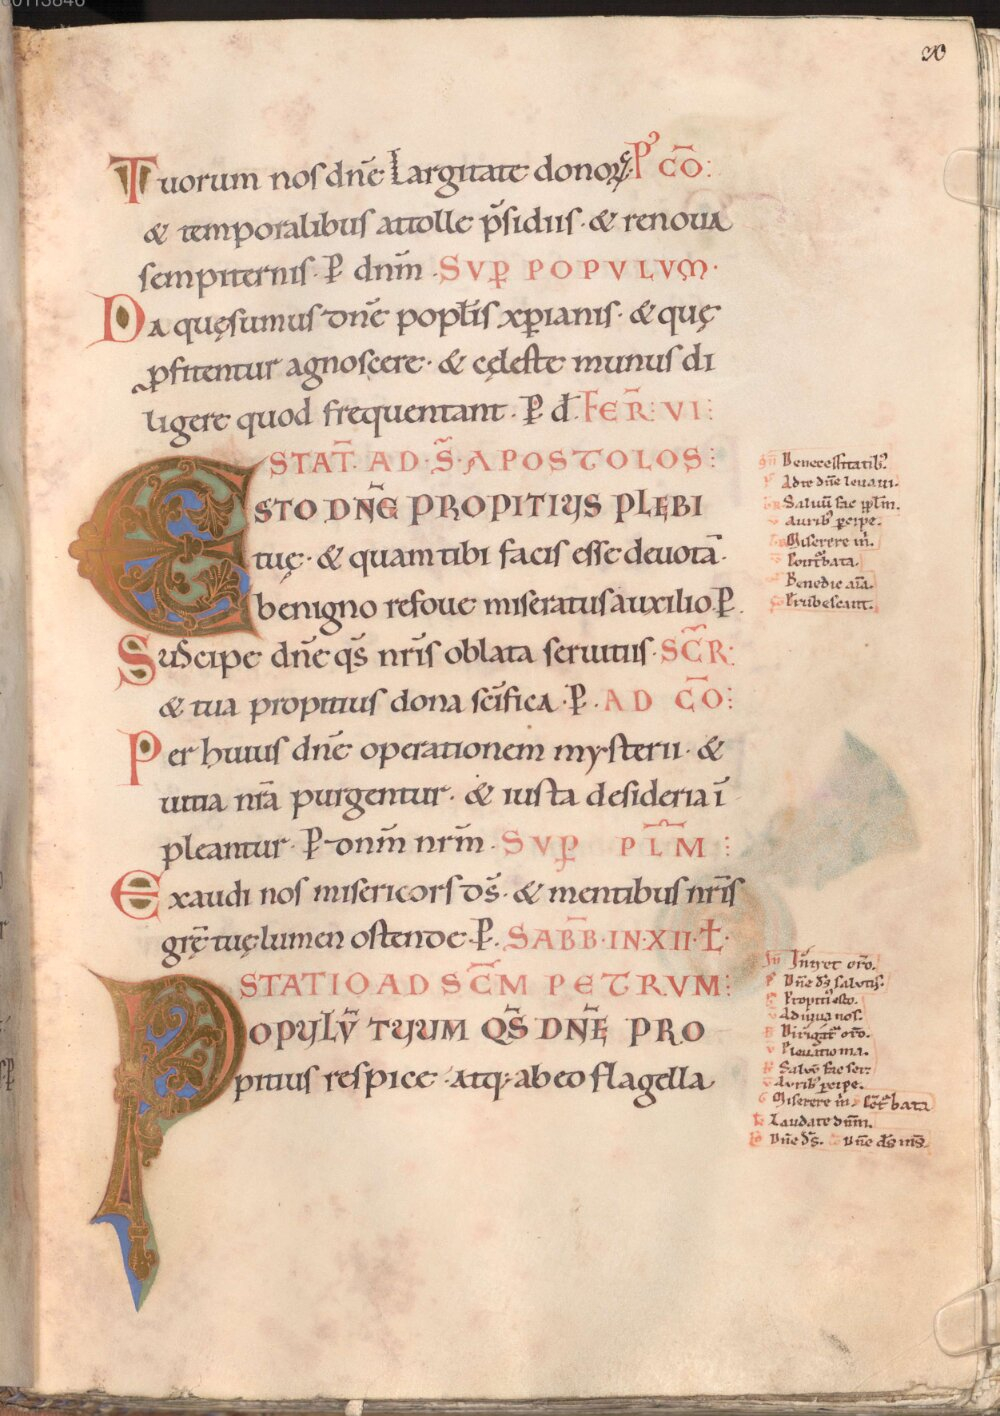 Tuorum nos dnē Largitate donoꝝ; P' CŌ:
& temporalibus attolle p̄sidiis · & renoua
sempiternis · P̱ dnm̄ · SVP̱ POPVLVM·
Da quęsumus dnē popłis xp̱ianis · & quę
ꝓfitentur agnoscere · & cęleste munus di
ligere quod frequentant · P̱ d̄ FER̄: VI:
STAT̄ AD S̄ APOSTOLOS:
ESTO DN̄E PROPITIUS PLEBI
tuę · & quam tibi facis esse deuotā·
benigno refoue miseratus auxilio · P̱.
Suscipe dnē qs̄ nr̄is oblata seruitiis · SC̄R:
& tua propitius dona scīfica · P̱ · AD CŌ:
Per huius dnē operationem mysterii · &
uitia nrā purgentur · & iusta desideria ī
pleantur · P̱ dnm̄ nrm̄ · SVP̱ PL̄M :
Exaudi nos misericors ds̄ · & mentibus nr̄is
gr̄ę tuę lumen ostende · P̱ · SABB̄ · IN · XII · Ł·
STATIO AD SC̄M PETRVM:
POPULŪ TUUM QS̄ DN̄E PRO
pitius respice · atq; ab eo flagella
De necessitatib'.
Ad te dn̄e leuaui.
Saluū fac pp̄lm.
Aurib' p̱cipe.
Miserere m̄.
Cont'bata.
Benedic aīa.
Erubescant.
Intret or̄o.
Dn̄e ds̄ salutis.
Propiti' esto.
Adiuua nos.
Dirigat' or̄o.
Eleuatio ma.
Saluū fac ser:
Aurib' p̱cipe.
Miserere m̄. Cōt'bata
Laudate dn̄m.
Dn̄e ds̄. Dn̄e ds̄ ms̄.